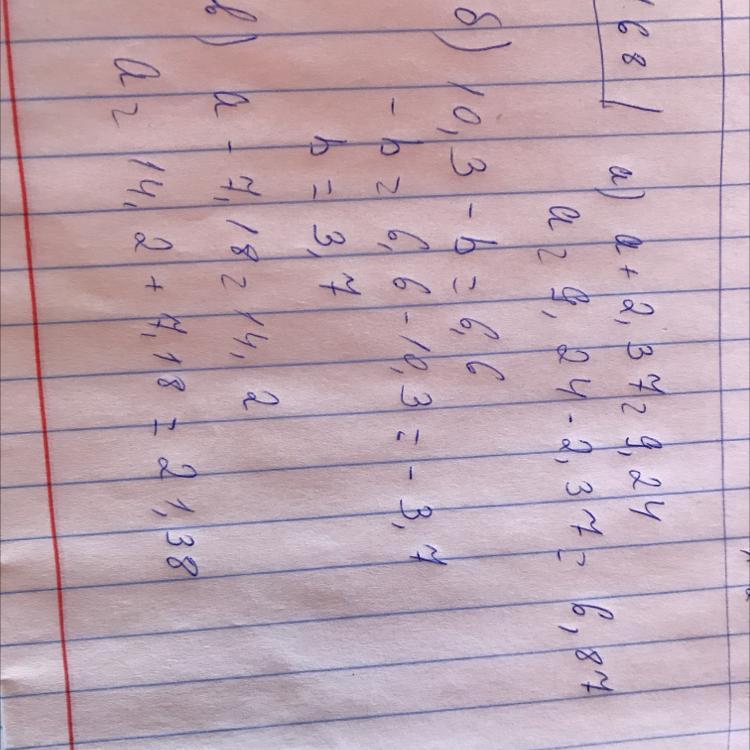 168
а) а + 2,37 = 9,24
а = 9,24 - 2,37 = 6,87
б) 10,3 - b = 6,6
-b = 6,6 - 10,3 = -3,7
b = 3,7
в) а - 7,18 = 14,2
а = 14,2 + 7,18 = 21,38